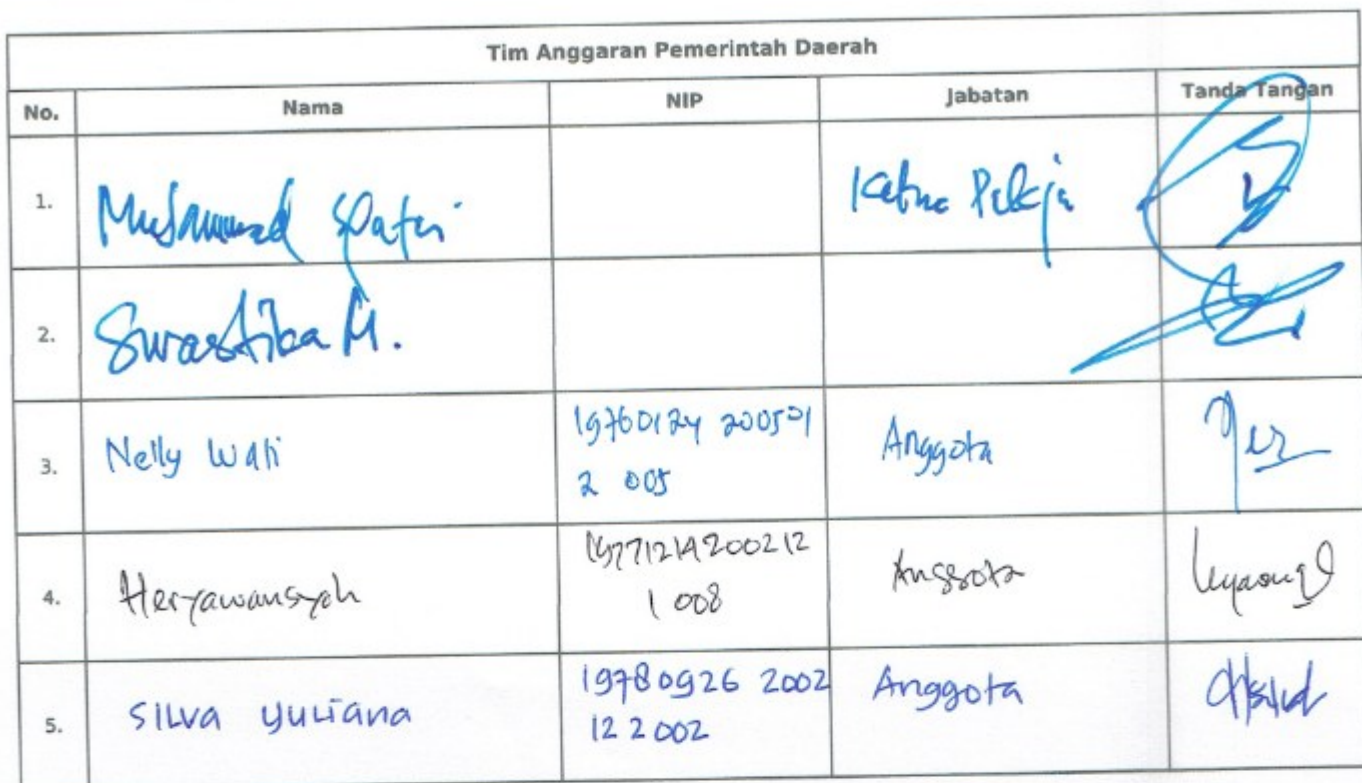 Tim Anggaran Pemerintah Daerah
No. Nama NIP Jabatan Tanda Tangan
1. Muhammad Syatri Ketua
2. Swastika M.
3. Nelly Wati 19760124 200501 Anggota
2 005
4. Heryawansyah 19771214200212 Anggota
1 008
5. SILVA YULIANA 19780926 2002 Anggota
12 2 002